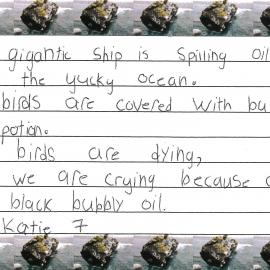 gigantic ship is spilling oil
the yucky ocean.
birds are covered with bu
potion.
birds are dying,
we are crying because
black bubbly oil.
Katie 7